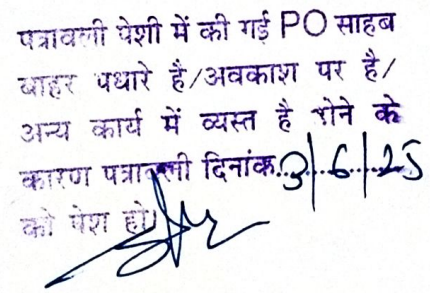 पत्रावली पेशी में की गई PO साहब
बाहर पधारे है/अवकाश पर है/
अन्य कार्य में व्यस्त है होने के
कारण पत्रावली दिनांक 3/6/25
को पेश हो।